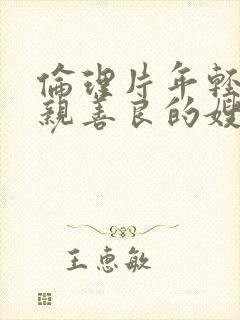 倫理片年輕
親善良的嫂
王惠敏